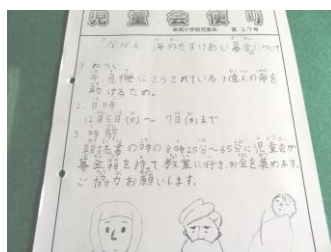 児童会便り
第27号
NHK 海外たすけあい募金について
1.ねらい
危機にさらされている1億人の命を
助けるため。
2.日時
12月5日(火)～7日(木)まで
3.時間
朝読書の時の8時25分～35分に児童会が
募金箱を持って教室に行き、お金を集めます。
ご協力お願いします。